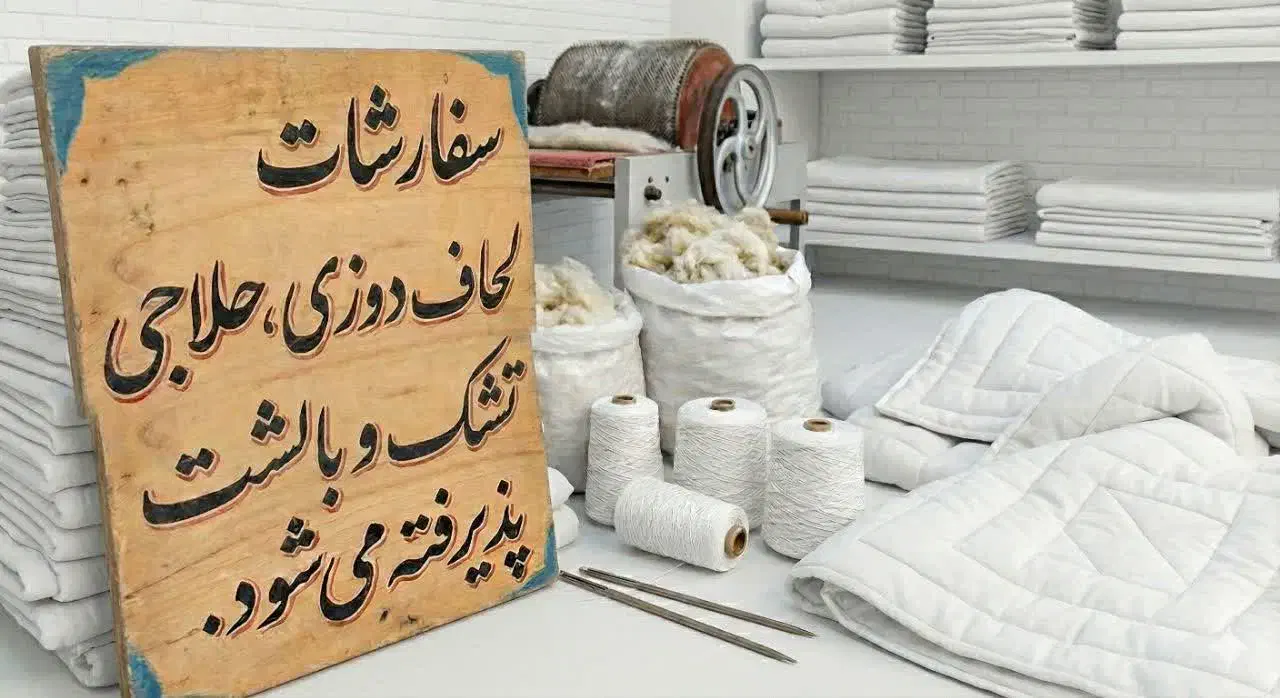 سفارشات
لحاف دوزی، حلاجی
تشک و بالشت
پذیرفته می شود.